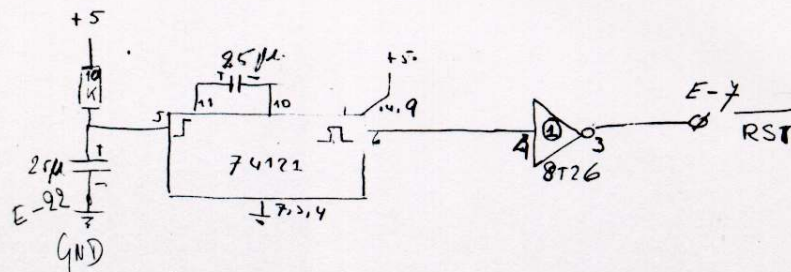 +5
10
K
25µ.
+5.
5
11
10
14, 9
6
74121
7,3,4
25µ
E-22
GND
4
1
3
8T26
E-7
RST